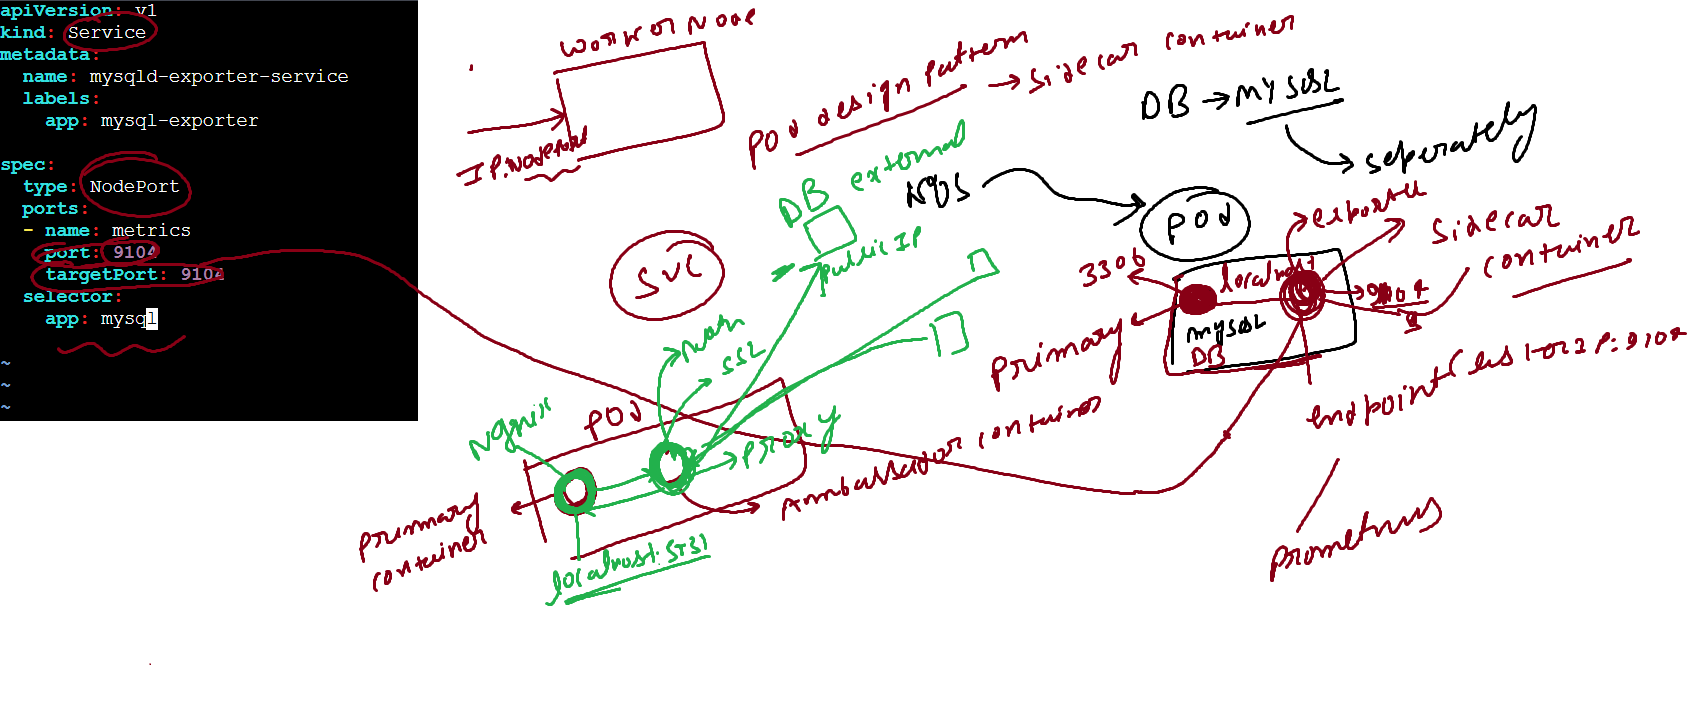 apiVersion: v1
kind: Service
metadata:
  name: mysqld-exporter-service
  labels:
    app: mysql-exporter
spec:
  type: NodePort
  ports:
  - name: metrics
    port: 9104
    targetPort: 9104
  selector:
    app: mysql
~
~
~
worker Node
IP:Nodeport
POd design pattern
→ sidecar container
DB → MySQL
seperately
DB external
public IP
SVC
POd
exporter
sidecar
container
3306
localhost
9104
mysql
DB
primary
endpoint
prometheus
auth
SSL
Nginx
POd
proxy
Ambassador container
primary
container